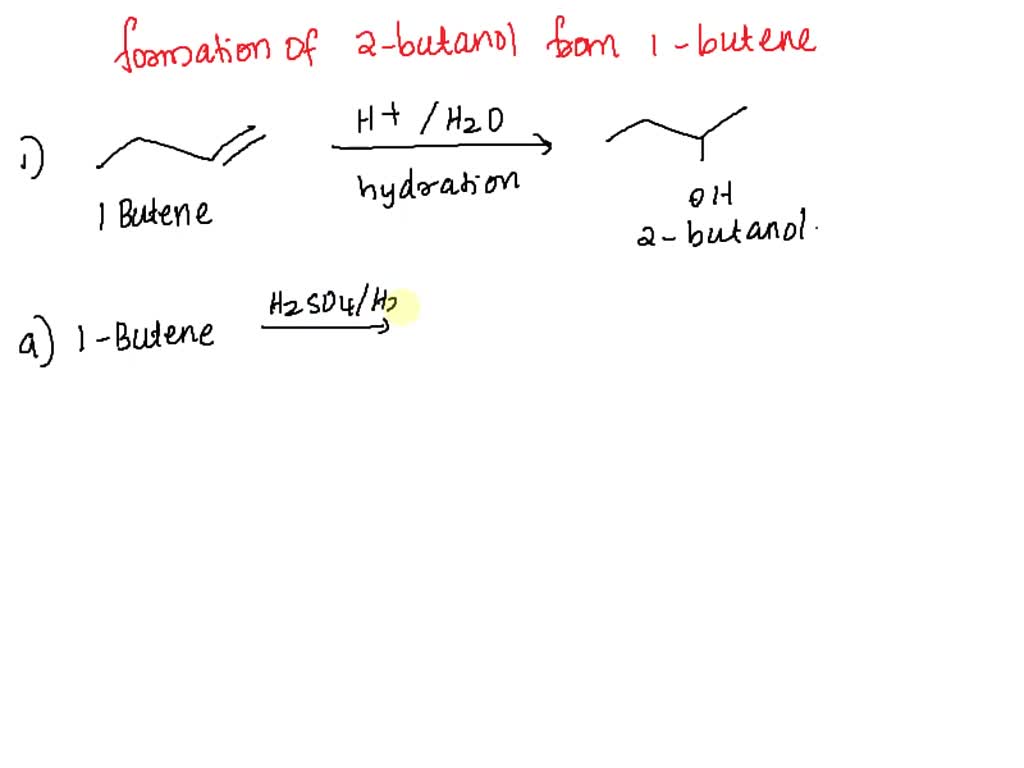 formation of 2-butanol from 1-butene
i)
H+ / H2O
hydration
1 Butene
OH
2-butanol.
a) 1-Butene
H2SO4/H2